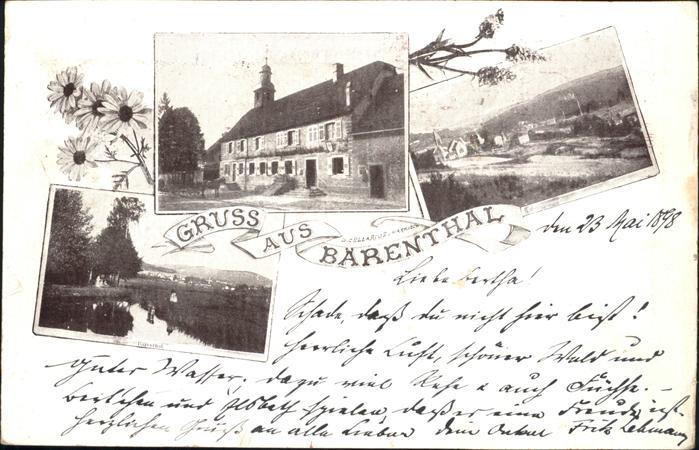 GRUSS AUS BÄRENTHAL
den 23 Mai 1898
Liebe Bertha!
Schade, daß du nicht hier bist!
Herrliche Luft, schöner Wald und
gutes Wasser, dazu viel Rehe & auch Füchse. –
Bertchen und Elsbeth spielen, daß es eine Freude ist.
Herzlichen Gruß an alle Lieben dein Onkel Fritz Lehmann